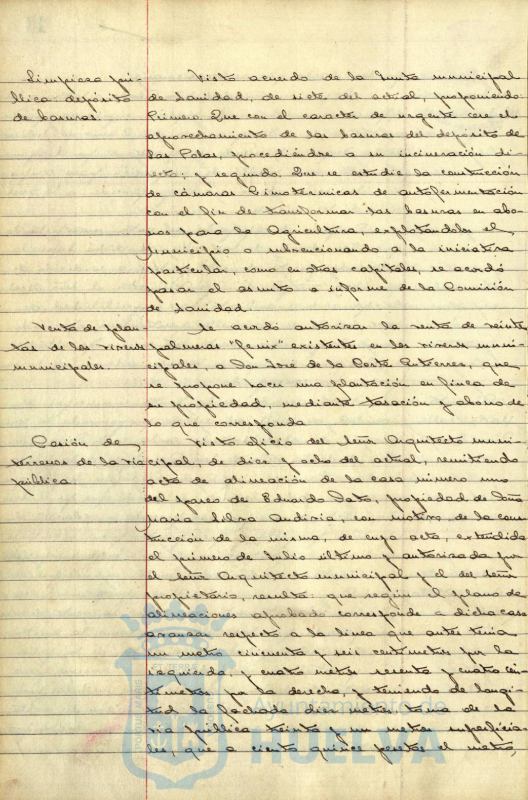 Limpieza pú-
blica depósito
de basuras.
Visto acuerdo de la Junta municipal
de Sanidad, de siete del actual, proponiendo:
Primero. Que con el caracter de urgente cese el
aprovechamiento de las basuras del depósito de
las Polas, procediéndose a su incineración di-
recta; y segundo. Que se estudie la construcción
de cámaras Cimotermicas de autofermentación
con el fin de transformar las basuras en abo-
nos para la Agricultura, explotandolas el
Municipio o subvencionando a la iniciativa
particular, como en otras capitales, se acordó
pasar el asunto a informe de la Comisión
de Sanidad.
Venta de plan-
tas de los viveros
municipales.
Se acordó autorizar la venta de veinte
palmeras "Fenix" existentes en los viveros muni-
cipales, a Don José de la Corte Gutierrez, que
se propone hacer una plantación en finca de
su propiedad, mediante tasación y abono de
lo que corresponda
Cesión de
terrenos de la vía
pública.
Visto oficio del Señor Arquitecto muni-
cipal, de diez y ocho del actual, remitiendo
acta de alineación de la casa número uno
del paseo de Eduardo Dato, propiedad de Doña
Maria Silva, con motivo de la cons-
trucción de la misma, de cuya acta, extendida
el primero de Julio último y autorizada por
el Señor Arquitecto municipal y el del señor
propietario, resulta: que según el plano de
alineaciones aprobado corresponde a dicha casa
avanzar respecto a la linea que antes tenia
un metro cincuenta y seis centimetros por la
izquierda, y cuatro metros sesenta y cuatro cen-
timetros por la derecha, y teniendo de longi-
tud la fachada diez metros toma de la
via pública treinta y un metros superficia-
les, que a ciento quince pesetas el metro,
Ayuntamiento de
HUELVA